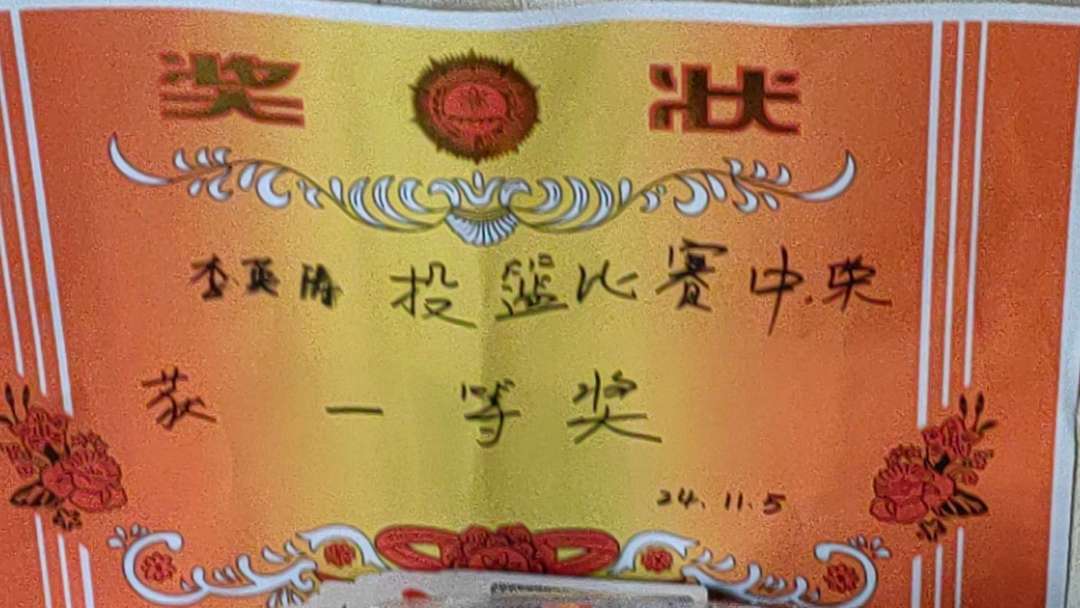 奖状
李英涛 投篮比赛中荣
获 一等奖
24.11.5